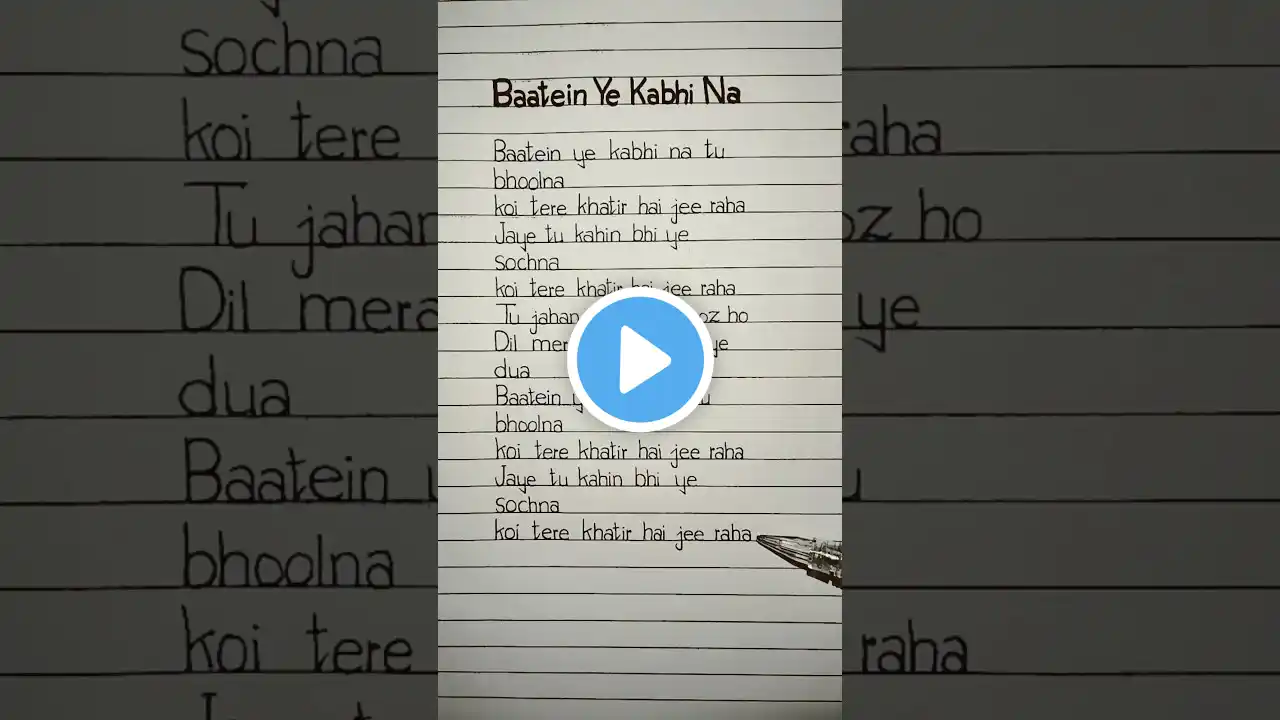 Baatein Ye Kabhi Na
Baatein ye kabhi na tu
bhoolna
koi tere khatir hai jee raha
Jaye tu kahin bhi ye
sochna
koi tere khatir hai jee raha
Tu jahan ho
Dil ye
dua
Baatein
bhoolna
koi tere khatir hai jee raha
Jaye tu kahin bhi ye
sochna
koi tere khatir hai jee raha